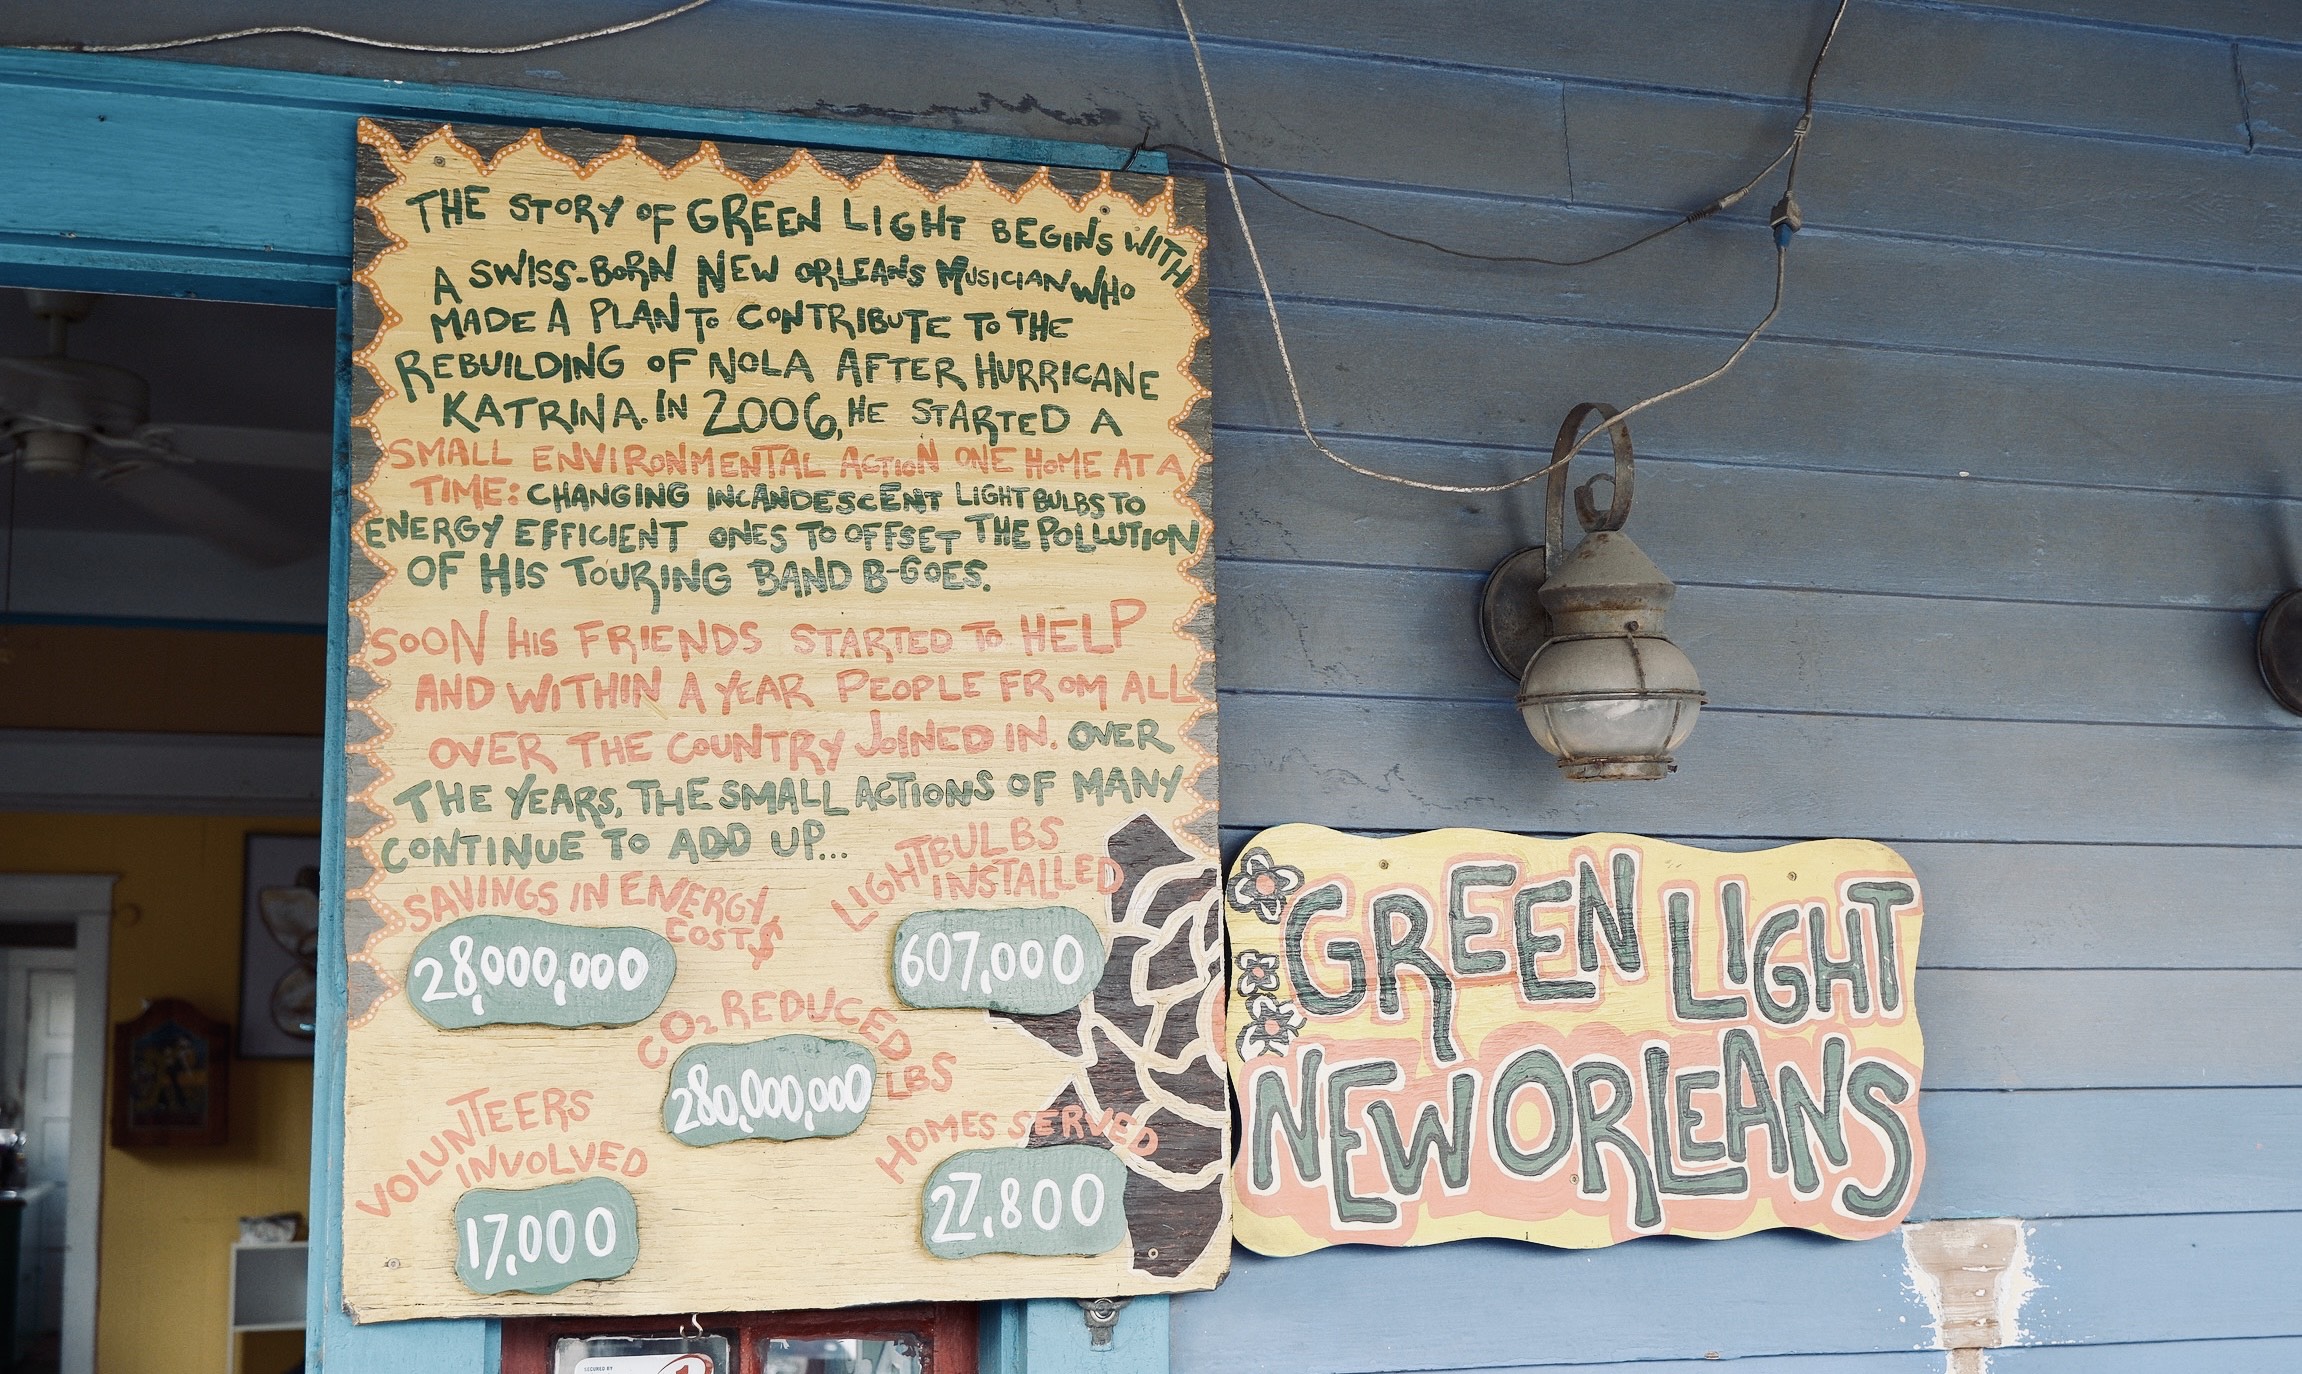 THE STORY OF GREEN LIGHT BEGINS WITH
A SWISS-BORN NEW ORLEANS MUSICIAN WHO
MADE A PLAN TO CONTRIBUTE TO THE
REBUILDING OF NOLA AFTER HURRICANE
KATRINA. IN 2006, HE STARTED A
SMALL ENVIRONMENTAL ACTION ONE HOME AT A
TIME: CHANGING INCANDESCENT LIGHTBULBS TO
ENERGY EFFICIENT ONES TO OFFSET THE POLLUTION
OF HIS TOURING BAND B-GOES.
SOON HIS FRIENDS STARTED TO HELP
AND WITHIN A YEAR PEOPLE FROM ALL
OVER THE COUNTRY JOINED IN. OVER
THE YEARS, THE SMALL ACTIONS OF MANY
CONTINUE TO ADD UP...
SAVINGS IN ENERGY
COST$
28,000,000
LIGHTBULBS
INSTALLED
607,000
CO2 REDUCED
LBS
280,000,000
VOLUNTEERS
INVOLVED
17,000
HOMES SERVED
27,800
GREEN LIGHT
NEW ORLEANS
SECURED BY